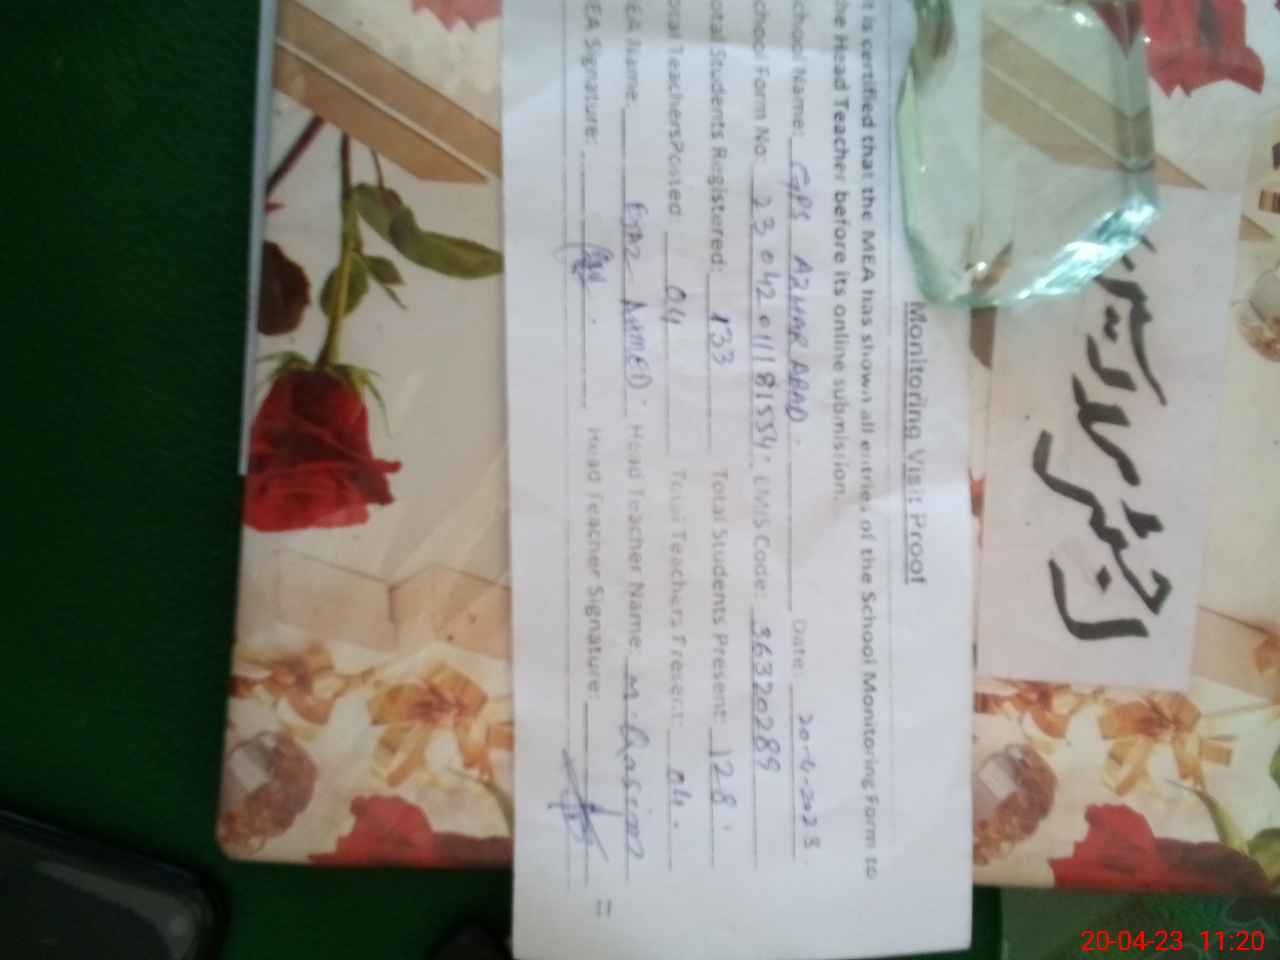 Monitoring Visit Proof
t is certified that the MEA has shown all entries of the School Monitoring Form to
he Head Teacher before its online submission.
chool Name: GPS AZHAR ABAD. Date: 20-4-2023.
chool Form No: 23042011181554 EMIS Code: 36320289
otal Students Registered: 133 Total Students Present: 128
otal Teachers Posted: 04 Total Teachers Present: 04.
EA Name: EJAZ AHMED Head Teacher Name: M. Qasim
EA Signature: Head Teacher Signature:
20-04-23 11:20